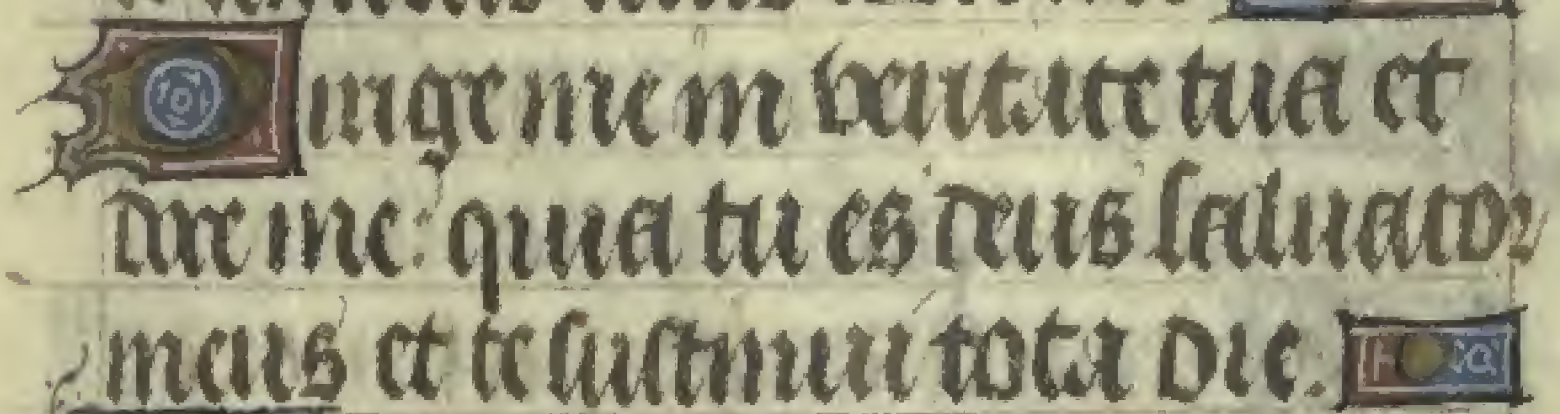 Dirige me in veritate tua et
doce me: quia tu es deus saluator
meus et te sustinui tota die.